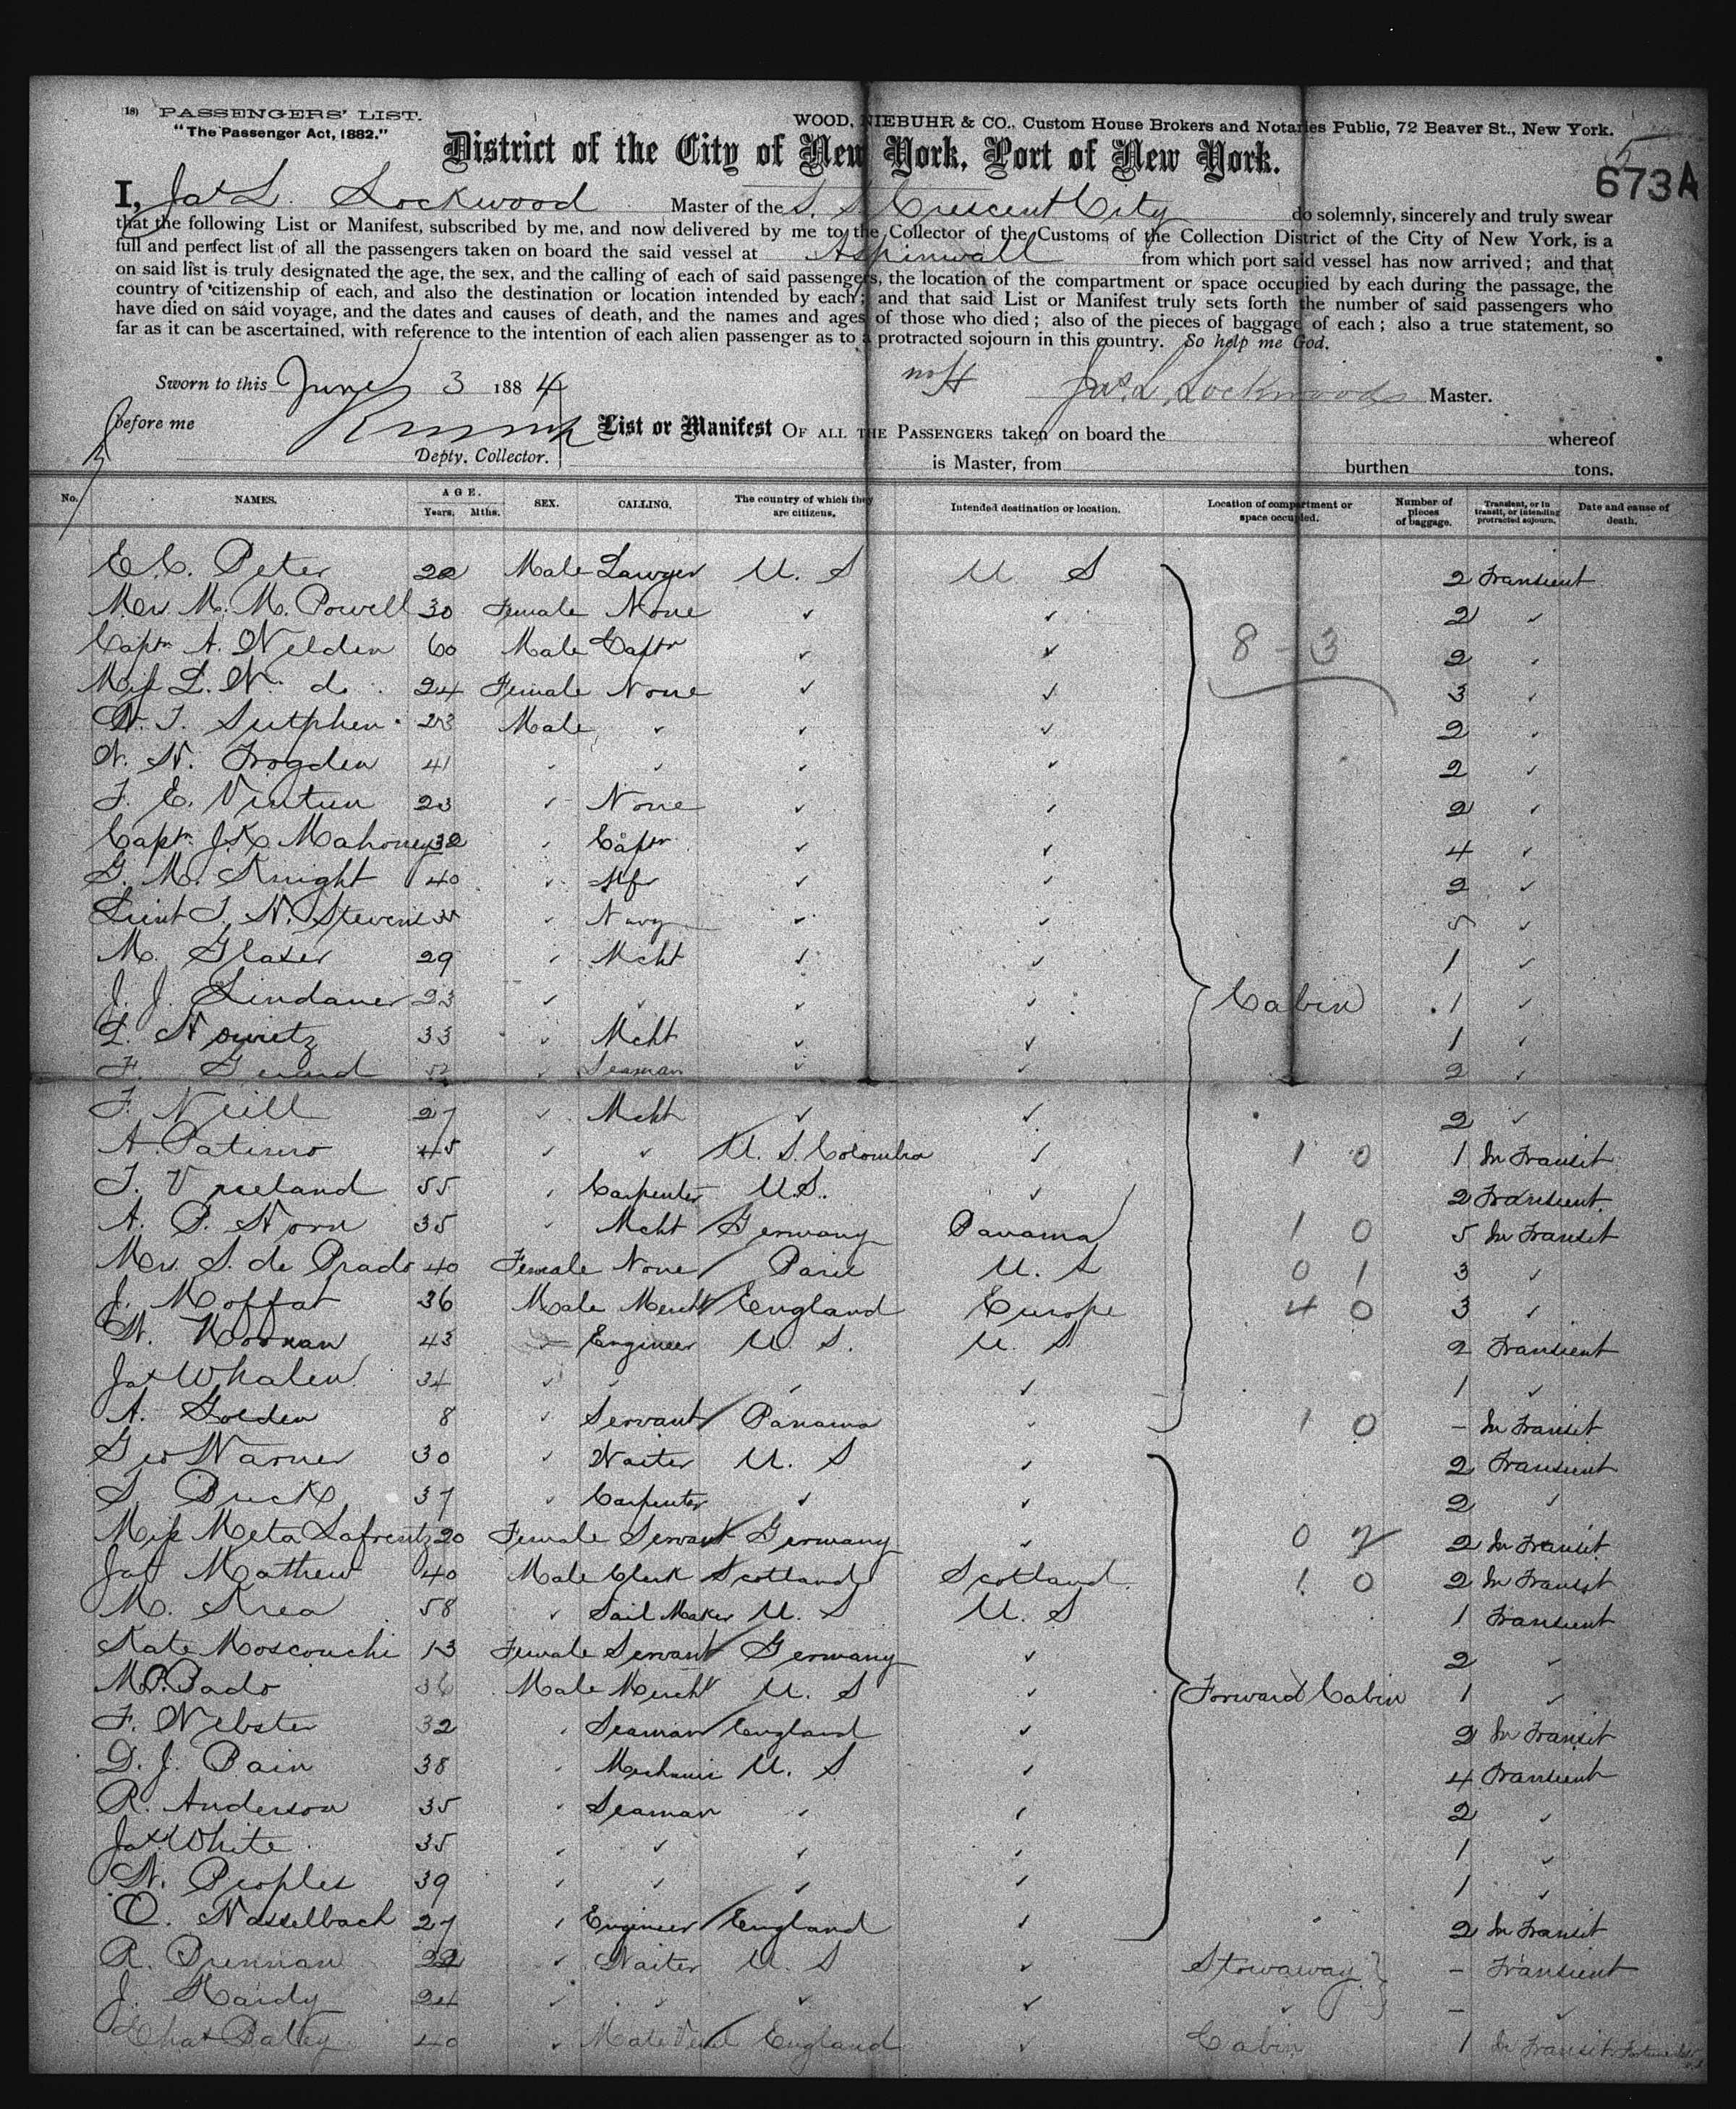 18) PASSENGERS' LIST.
"The Passenger Act, 1882."
WOOD, NIEBUHR & CO., Custom House Brokers and Notaries Public, 72 Beaver St., New York.
District of the City of New York, Port of New York.
5
673A
I, Jas L. Lockwood Master of the S. S. Crescent City do solemnly, sincerely and truly swear
that the following List or Manifest, subscribed by me, and now delivered by me to the Collector of the Customs of the Collection District of the City of New York, is a
full and perfect list of all the passengers taken on board the said vessel at Aspinwall from which port said vessel has now arrived; and that
on said list is truly designated the age, the sex, and the calling of each of said passengers, the location of the compartment or space occupied by each during the passage, the
country of citizenship of each, and also the destination or location intended by each; and that said List or Manifest truly sets forth the number of said passengers who
have died on said voyage, and the dates and causes of death, and the names and ages of those who died; also of the pieces of baggage of each; also a true statement, so
far as it can be ascertained, with reference to the intention of each alien passenger as to a protracted sojourn in this country. So help me God.
Sworn to this June 3 1884 Jas. L. Lockwood Master.
before me
Depty. Collector.
List or Manifest OF ALL THE PASSENGERS taken on board the whereof
is Master, from burthen tons.
No. NAMES. AGE. Years. Mths. SEX. CALLING. The country of which they are citizens. Intended destination or location. Location of compartment or space occupied. Number of pieces of baggage. Transient, or in transit, or intending protracted sojourn. Date and cause of death.
E. C. Peter 22 Male Lawyer U. S U S 2 Transient
Mrs. M. M. Powell 30 Female None ✓ ✓ 2 ✓
Captn A. Nelden 60 Male Captn ✓ ✓ 8 - 3 2 ✓
Miss L. N. do. 24 Female None ✓ ✓ 3 ✓
W. T. Sutphen 23 Male ✓ ✓ ✓ 2 ✓
W. N. Frogden 41 ✓ ✓ ✓ ✓ 2 ✓
F. E. 23 ✓ None ✓ ✓ 2 ✓
Captn J. K. Mahoney 32 ✓ Captn ✓ ✓ 4 ✓
G. M. Knight 40 ✓ Mfr ✓ ✓ 2 ✓
Lieut T. N. Stevens ✓ Navy ✓ ✓ 5 ✓
M. Glaser 29 ✓ Mcht ✓ ✓ 1 ✓
J. J. Lindauer 23 ✓ ✓ ✓ ✓ Cabin 1 ✓
L. 33 ✓ Mcht ✓ ✓ 1 ✓
F. ✓ Seaman ✓ ✓ 2 ✓
F. Neill 27 ✓ Mcht ✓ ✓ 2 ✓
A. Patisno 45 ✓ ✓ U. S. Colombia ✓ 1 0 1 In Transit
T. Vreeland 55 ✓ Carpenter U.S. ✓ 2 Transient.
A. P. Horn 35 ✓ Mcht Germany Panama 1 0 5 In Transit
Mrs. S. de Prado 40 Female None U. S 0 1 3 ✓
J. Moffat 36 Male Mercht England Europe 4 0 3 ✓
W. Noonan 43 Engineer U. S. U. S 2 Transient
Jas Whalen 34 ✓ ✓ ✓ ✓ 1 ✓
A. Golden 8 ✓ Servant Panama ✓ 1 0 - In Transit
Geo Warner 30 ✓ Waiter U. S ✓ 2 Transient
S. Buck 37 ✓ Carpenter ✓ ✓ 2 ✓
Miss Meta Lafrentz 20 Female Servant Germany ✓ 0 2 2 In Transit
Jas Mathew 40 Male Clerk Scotland Scotland 1 0 2 In Transit
M. Krea 58 ✓ Sail Maker U. S U. S 1 Transient
Kate Moscouchi 13 Female Servant Germany ✓ 2 ✓
M. P. Bado 36 Male Mercht U. S ✓ Forward Cabin 1 ✓
F. Webster 32 ✓ Seaman England ✓ 2 In Transit
D. J. Bain 38 ✓ Mechanic U. S. ✓ 4 Transient
R. Anderson 35 ✓ Seaman ✓ ✓ 2 ✓
Jas White 35 ✓ ✓ ✓ ✓ 1 ✓
W. Peoples 39 ✓ ✓ ✓ ✓ 1 ✓
O. Hasselbach 27 ✓ Engineer England ✓ 2 In Transit
R. Brennan 22 ✓ Waiter U. S ✓ Stowaway - Transient
J. Hardy 24 ✓ ✓ ✓ ✓ ✓ - ✓
Chas Daley 40 ✓ Mate England ✓ Cabin 1 In Transit